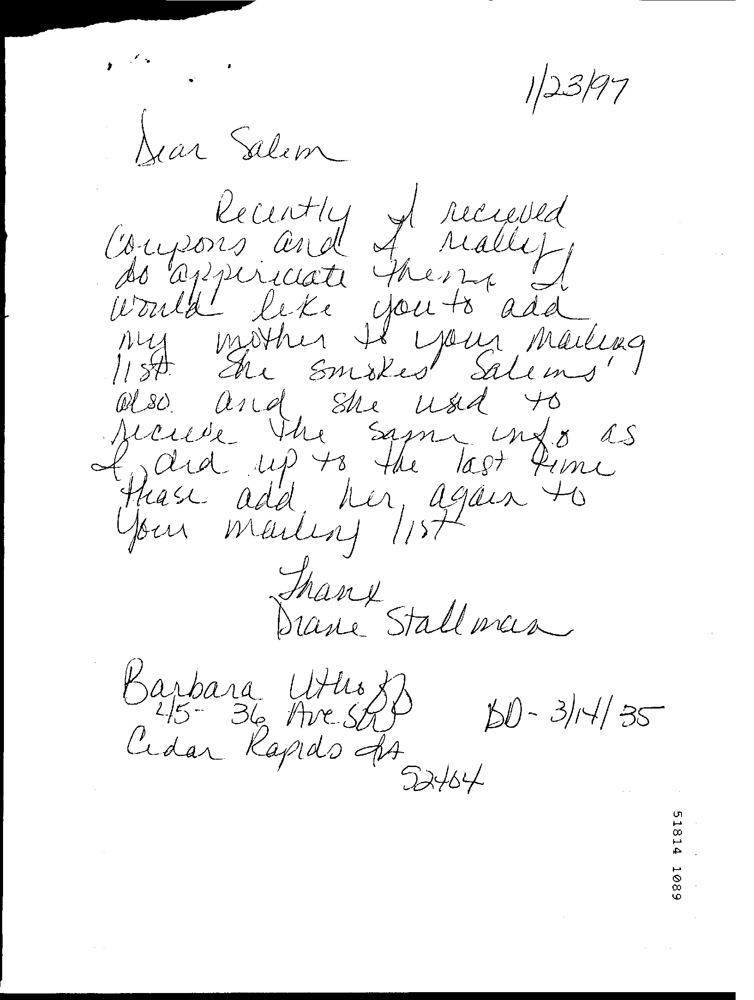 1/23/97
Dear Salem
Recently I recieved
Coupons and I really
do appericiate them. I
would like you to add
my mother to your mailing
list. She smokes Salems'
also. and she used to
recieve the same info as
I did up to the last time
Please add her again to
your mailing list
Thanx
Diane Stallman
Barbara Uthoff
45- 36 Ave. SW
BD- 3/14/35
Cedar Rapids IA
52404
51814 1089